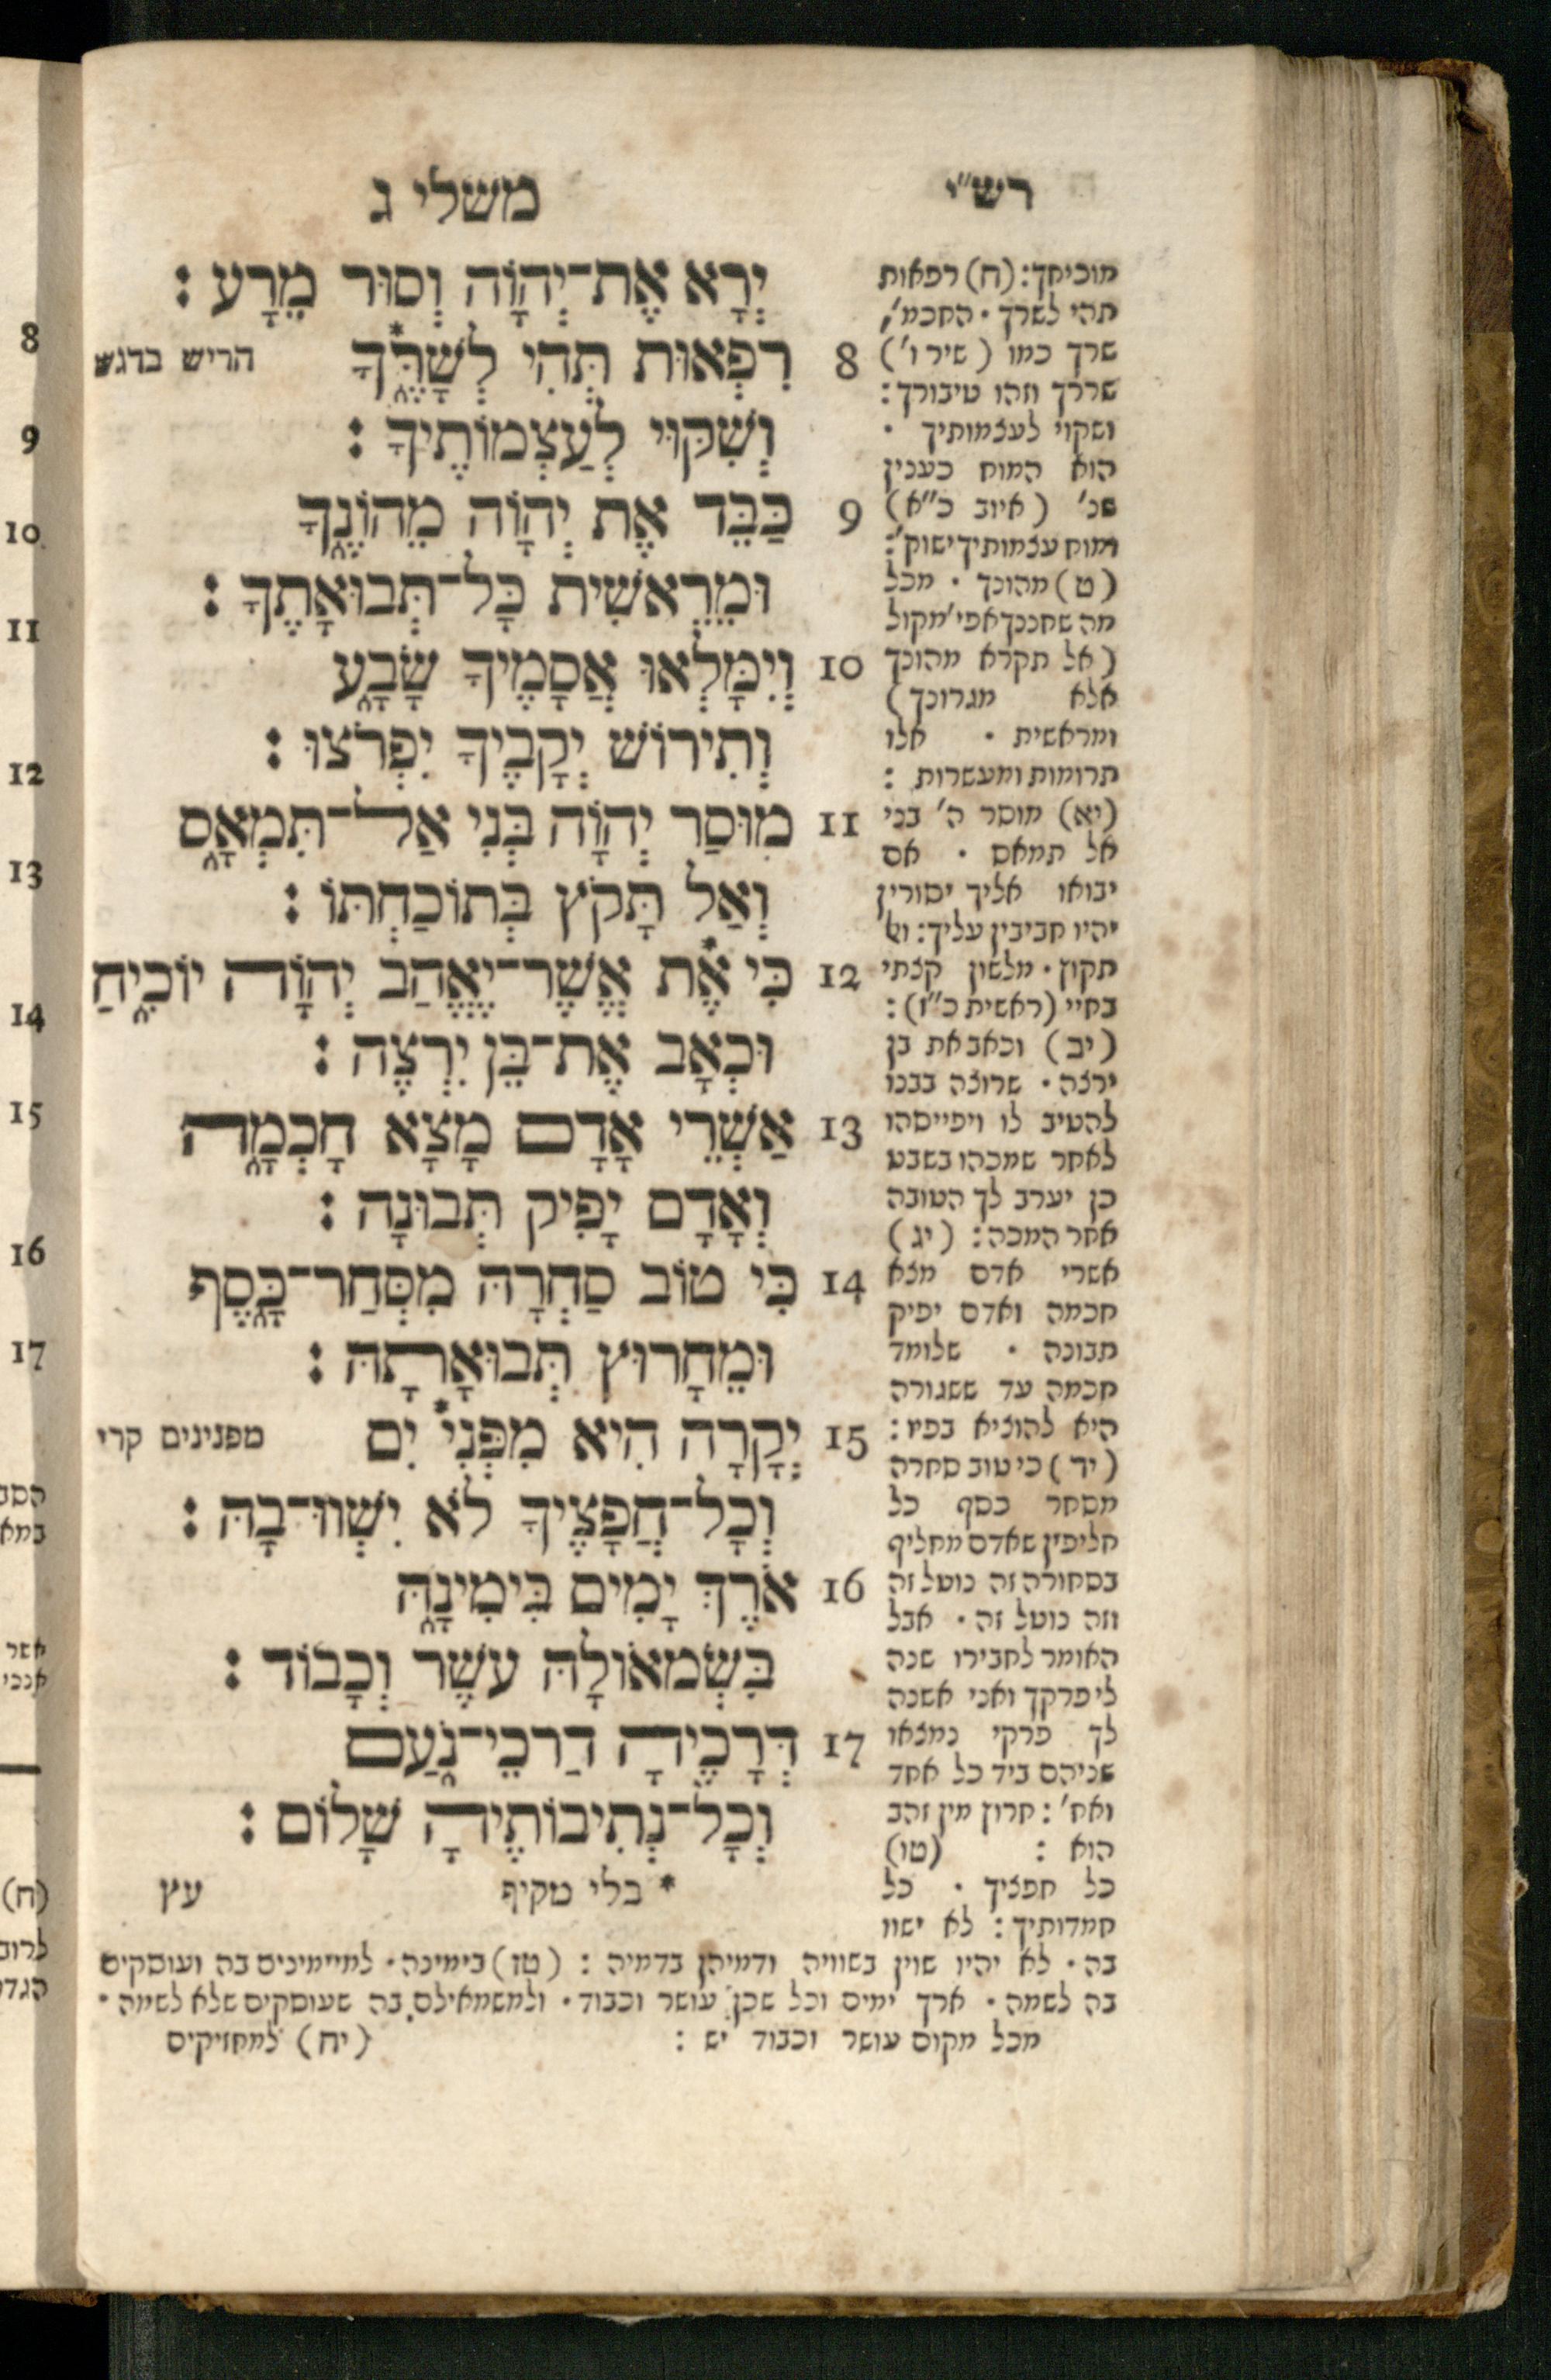 רש״י
משלי ג
יְרָא אֶת־יְהוָֹה וְסוּר מֵרָע :
8 רִפְאוּת תְּהִי לְשָׁרֶּךָ* הריש בדגש
וְשִׁקּוּי לְעַצְמוֹתֶיךָ :
9 כַּבֵּד אֶת יְהוָֹה מֵהוֹנֶךָ
וּמֵרֵאשִׁית כָּל־תְּבוּאָתֶךָ :
10 וְיִמָּלְאוּ אֲסָמֶיךָ שָׂבָע
וְתִירוֹשׁ יְקָבֶיךָ יִפְרֹצוּ :
11 מוּסַר יְהוָֹה בְּנִי אַל־תִּמְאָס
וְאַל תָּקֹץ בְּתוֹכַחְתּוֹ :
12 כִּי אֶת* אֲשֶׁר־יֶאֱהַב יְהוָֹה יוֹכִיחַ
וּכְאָב אֶת־בֵּן יִרְצֶה :
13 אַשְׁרֵי אָדָם מָצָא חָכְמָה
וְאָדָם יָפִיק תְּבוּנָה :
14 כִּי טוֹב סַחְרָהּ מִסְּחַר־כָּסֶף
וּמֵחָרוּץ תְּבוּאָתָהּ :
15 יְקָרָה הִיא מִפְּנִי*יִם מפנינים קרי
וְכָל־חֲפָצֶיךָ לֹא יִשְׁווּ־בָהּ :
16 אֹרֶךְ יָמִים בִּימִינָהּ
בִּשְׂמֹאולָהּ עֹשֶׁר וְכָבוֹד :
17 דְּרָכֶיהָ דַרְכֵי־נֹעַם
וְכָל־נְתִיבוֹתֶיהָ שָׁלוֹם :
* בלי מקיף
עץ
מוכיחך: (ח) רפאות
תהי לשרך · החכמ׳,
שרך כמו (שיר ו׳)
שררך וזהו טיבורך:
ושקוי לעצמותיך ·
הוא המוח כענין
שנ׳ (איוב כ״א)
ומוח עצמותיך ישוק׳:
(ט) מהונך · מכל
מה שחננך אפי׳ מקול
(אל תקרא מהונך
אלא מגרונך)
ומראשית · אלו
תרומות ומעשרות :
(יא) מוסר ה׳ בני
אל תמאס · אם
יבואו אליך יסורין
יהיו חביבין עליך:
תקוץ · מלשון קצתי
בחיי (ראשית כ״ז):
(יב) וכאב את בן
ירצה · שרוצה בבנו
להטיב לו ויפייסהו
לאחר שמכהו בשבט
כן יערב לך הטובה
אחר המכה: (יג)
אשרי אדם מצא
חכמה ואדם יפיק
תבונה · שלומד
חכמה עד ששגורה
היא להוציא בפיו:
(יד) כי טוב סחרה
מסחר כסף כל
חליפין שאדם מחליף
בסחורה זה נוטל זה
וזה נוטל זה · אבל
האומר לחבירו שנה
לי פרקך ואני אשנה
לך פרקי נמצאו
שניהם ביד כל אחד
ואח׳: חרוץ מין זהב
הוא : (טו)
כל חפציך · כל
חמדותיך: לא ישוו
בה · לא יהיו שוין בשוויה ודמיהן בדמיה : (טז) בימינה · למיימינים בה ועוסקים
בה לשמה · ארך ימים וכל שכן עושר וכבוד · ולמשמאילם בה שעוסקים שלא לשמה ·
מכל מקום עושר וכבוד יש : (יח) למחזיקים
8
9
10
11
12
13
14
15
16
17
אשר
אנכי
(ח)